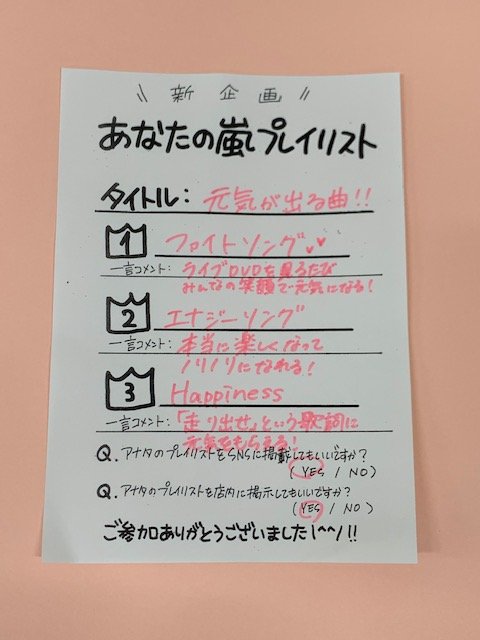 \\ 新企画 //
あなたの嵐プレイリスト
タイトル: 元気が出る曲!!
1 ファイトソング♥♥
一言コメント: ライブDVDを見るたび
みんなの笑顔で元気になる!
2 エナジーソング
一言コメント: 本当に楽しくなって
ノリノリになれる!
3 Happiness
一言コメント: 「走り出せ」という歌詞に
元気をもらえる!
Q. アナタのプレイリストをSNSに掲載してもいいですか?
(YES / NO)
Q. アナタのプレイリストを店内に掲示してもいいですか?
(YES / NO)
ご参加ありがとうございました\^^/!!